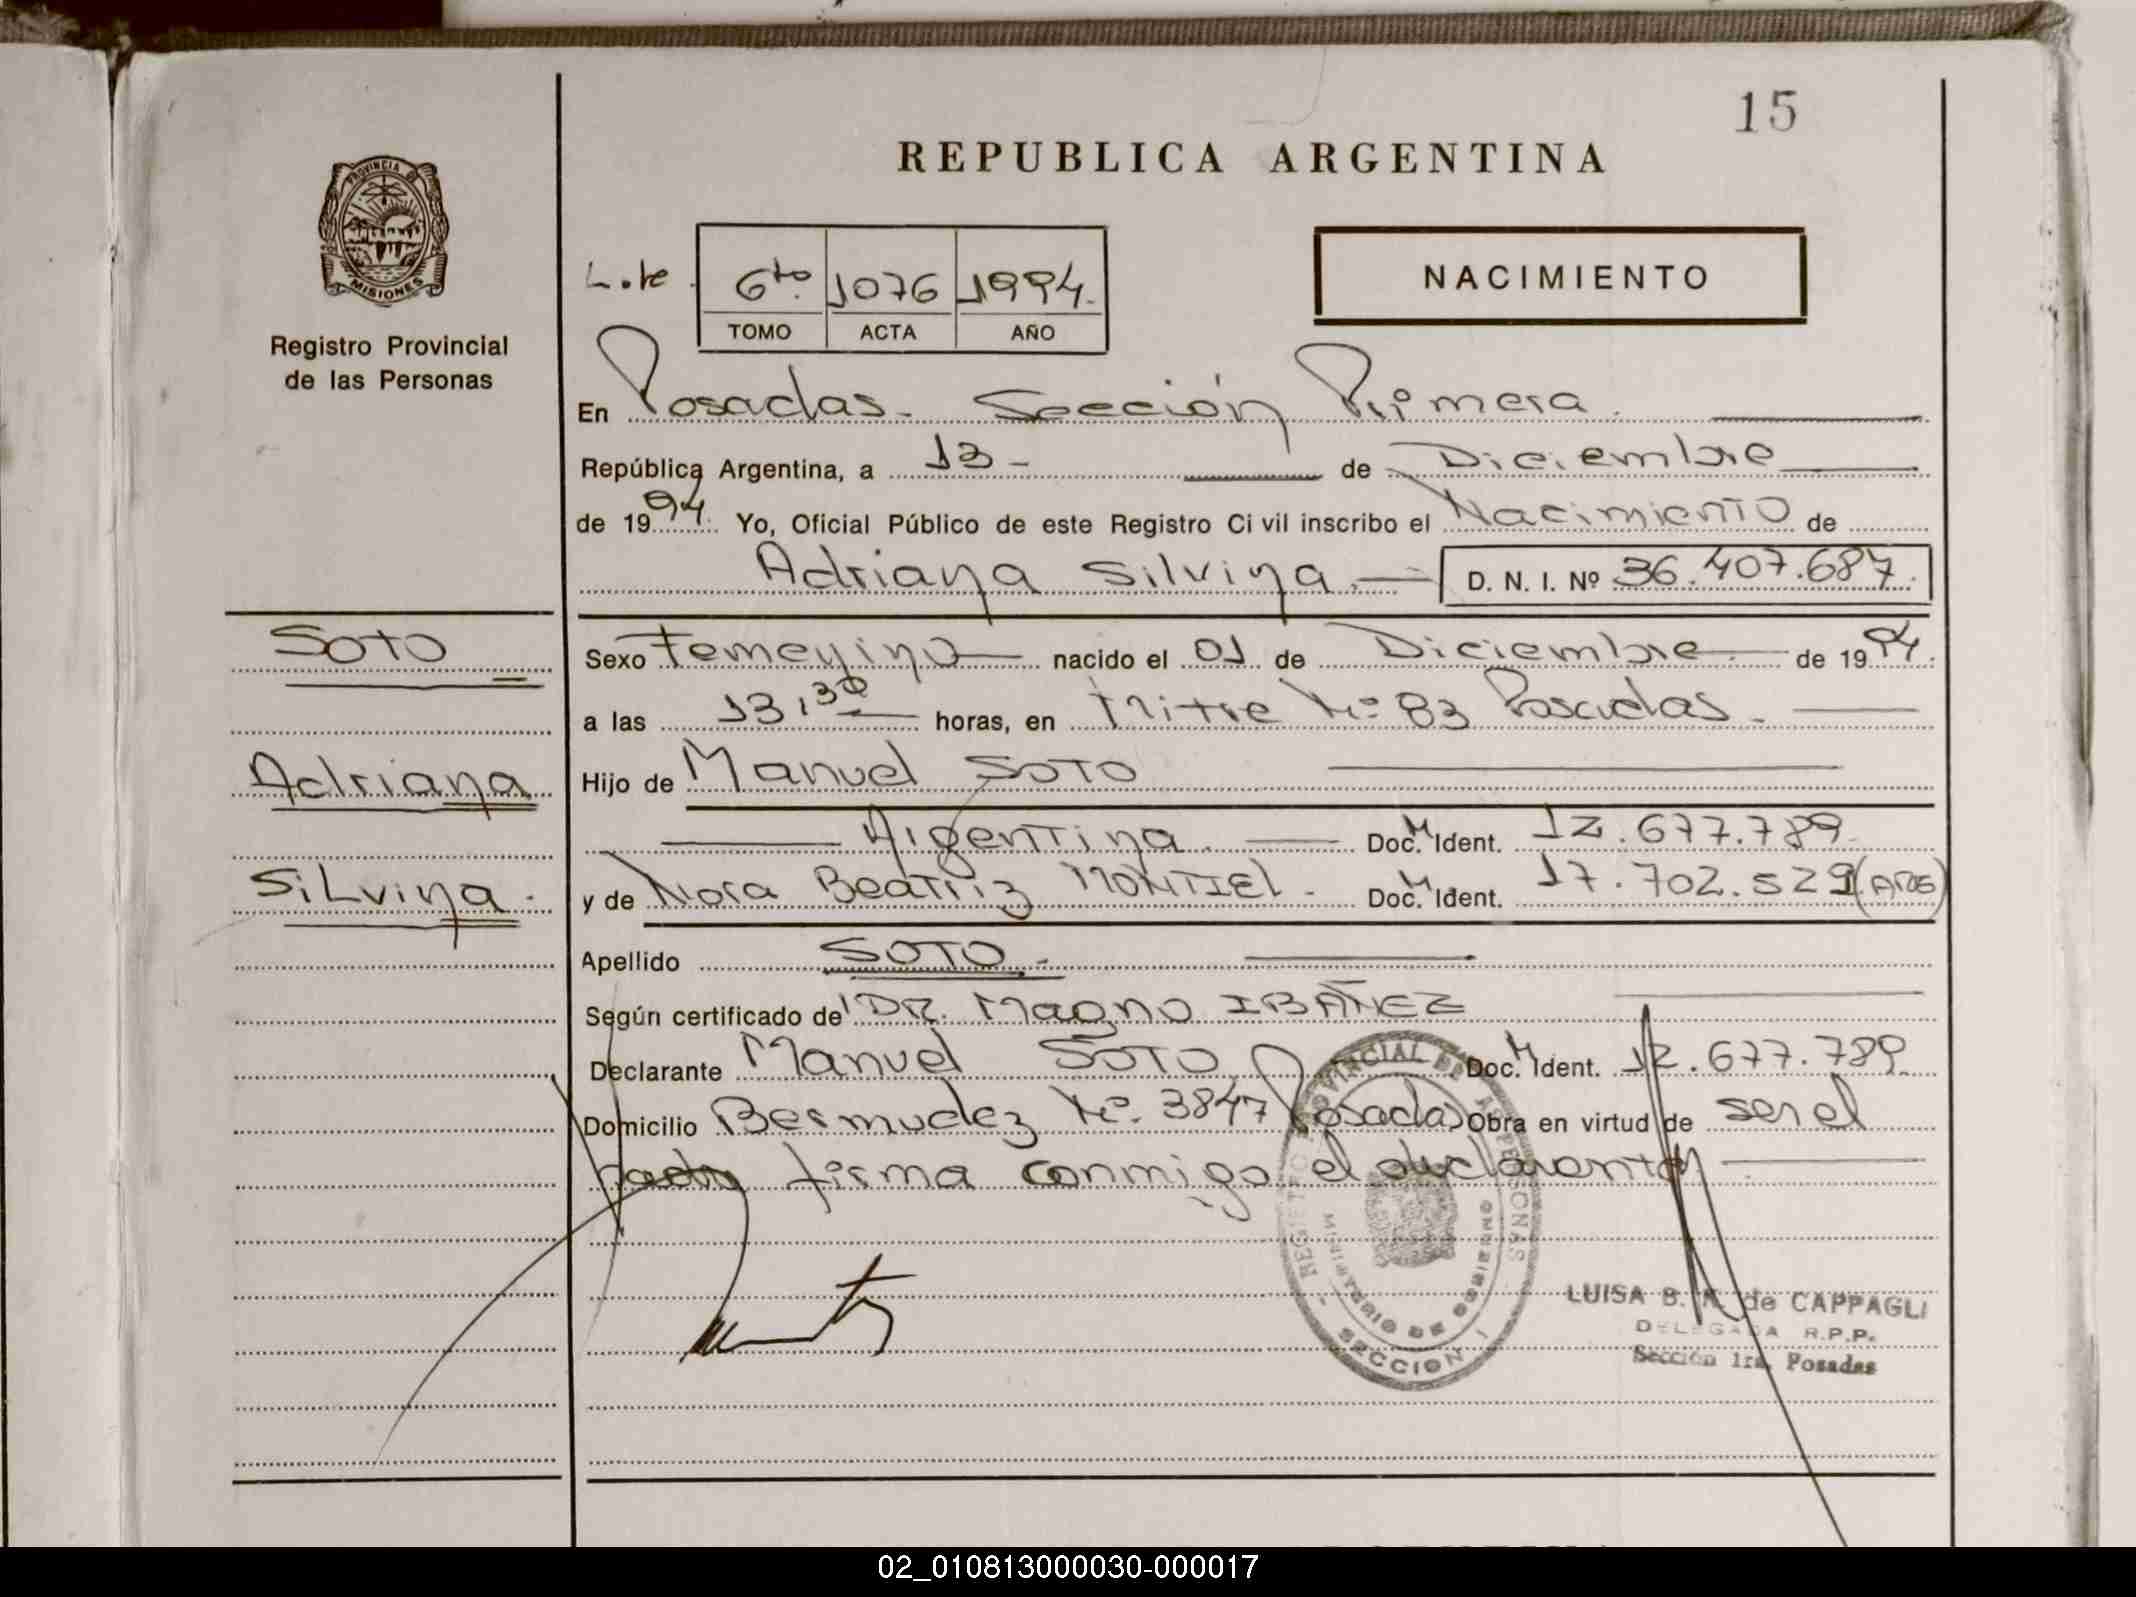 15
REPUBLICA ARGENTINA
PROVINCIA DE
MISIONES
Registro Provincial
de las Personas
Lote 6to. 1076 1994.
TOMO ACTA AÑO
NACIMIENTO
En Posadas - Sección Primera
República Argentina, a 13 - de Diciembre
de 1994. Yo, Oficial Público de este Registro Civil inscribo el Nacimiento de
Adriana Silvina. D. N. I. Nº 36.407.687.
SOTO
Sexo Femenino nacido el 01 de Diciembre de 1994.
a las 13,30 horas, en Mitre Nº 83 Posadas -
Adriana
Hijo de Manuel SOTO
Argentina. Doc. M Ident. 12.677.789.
SiLvina.
y de Nora Beatriz MONTIEL. Doc. M Ident. 17.702.529 (ARG)
Apellido SOTO.
Según certificado de DR. Magno IBAÑEZ
Declarante Manuel SOTO Doc. M Ident. 12.677.789.
Domicilio Bermudez Nº. 3847 Posadas Obra en virtud de ser el
padre firma conmigo el declarante
REGISTRO PROVINCIAL DE LAS PERSONAS
MINISTERIO DE GOBIERNO
- SECCION I -
LUISA B. de CAPPAGLI
DELEGADA R.P.P.
Sección 1ra. Posadas
02_010813000030-000017